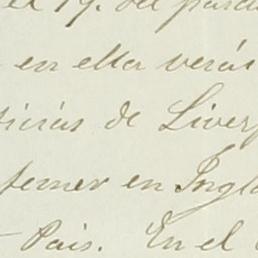 el 19. del pasa
en ella verás
ticias de Liverp
temer en Ingla
Pais. En el